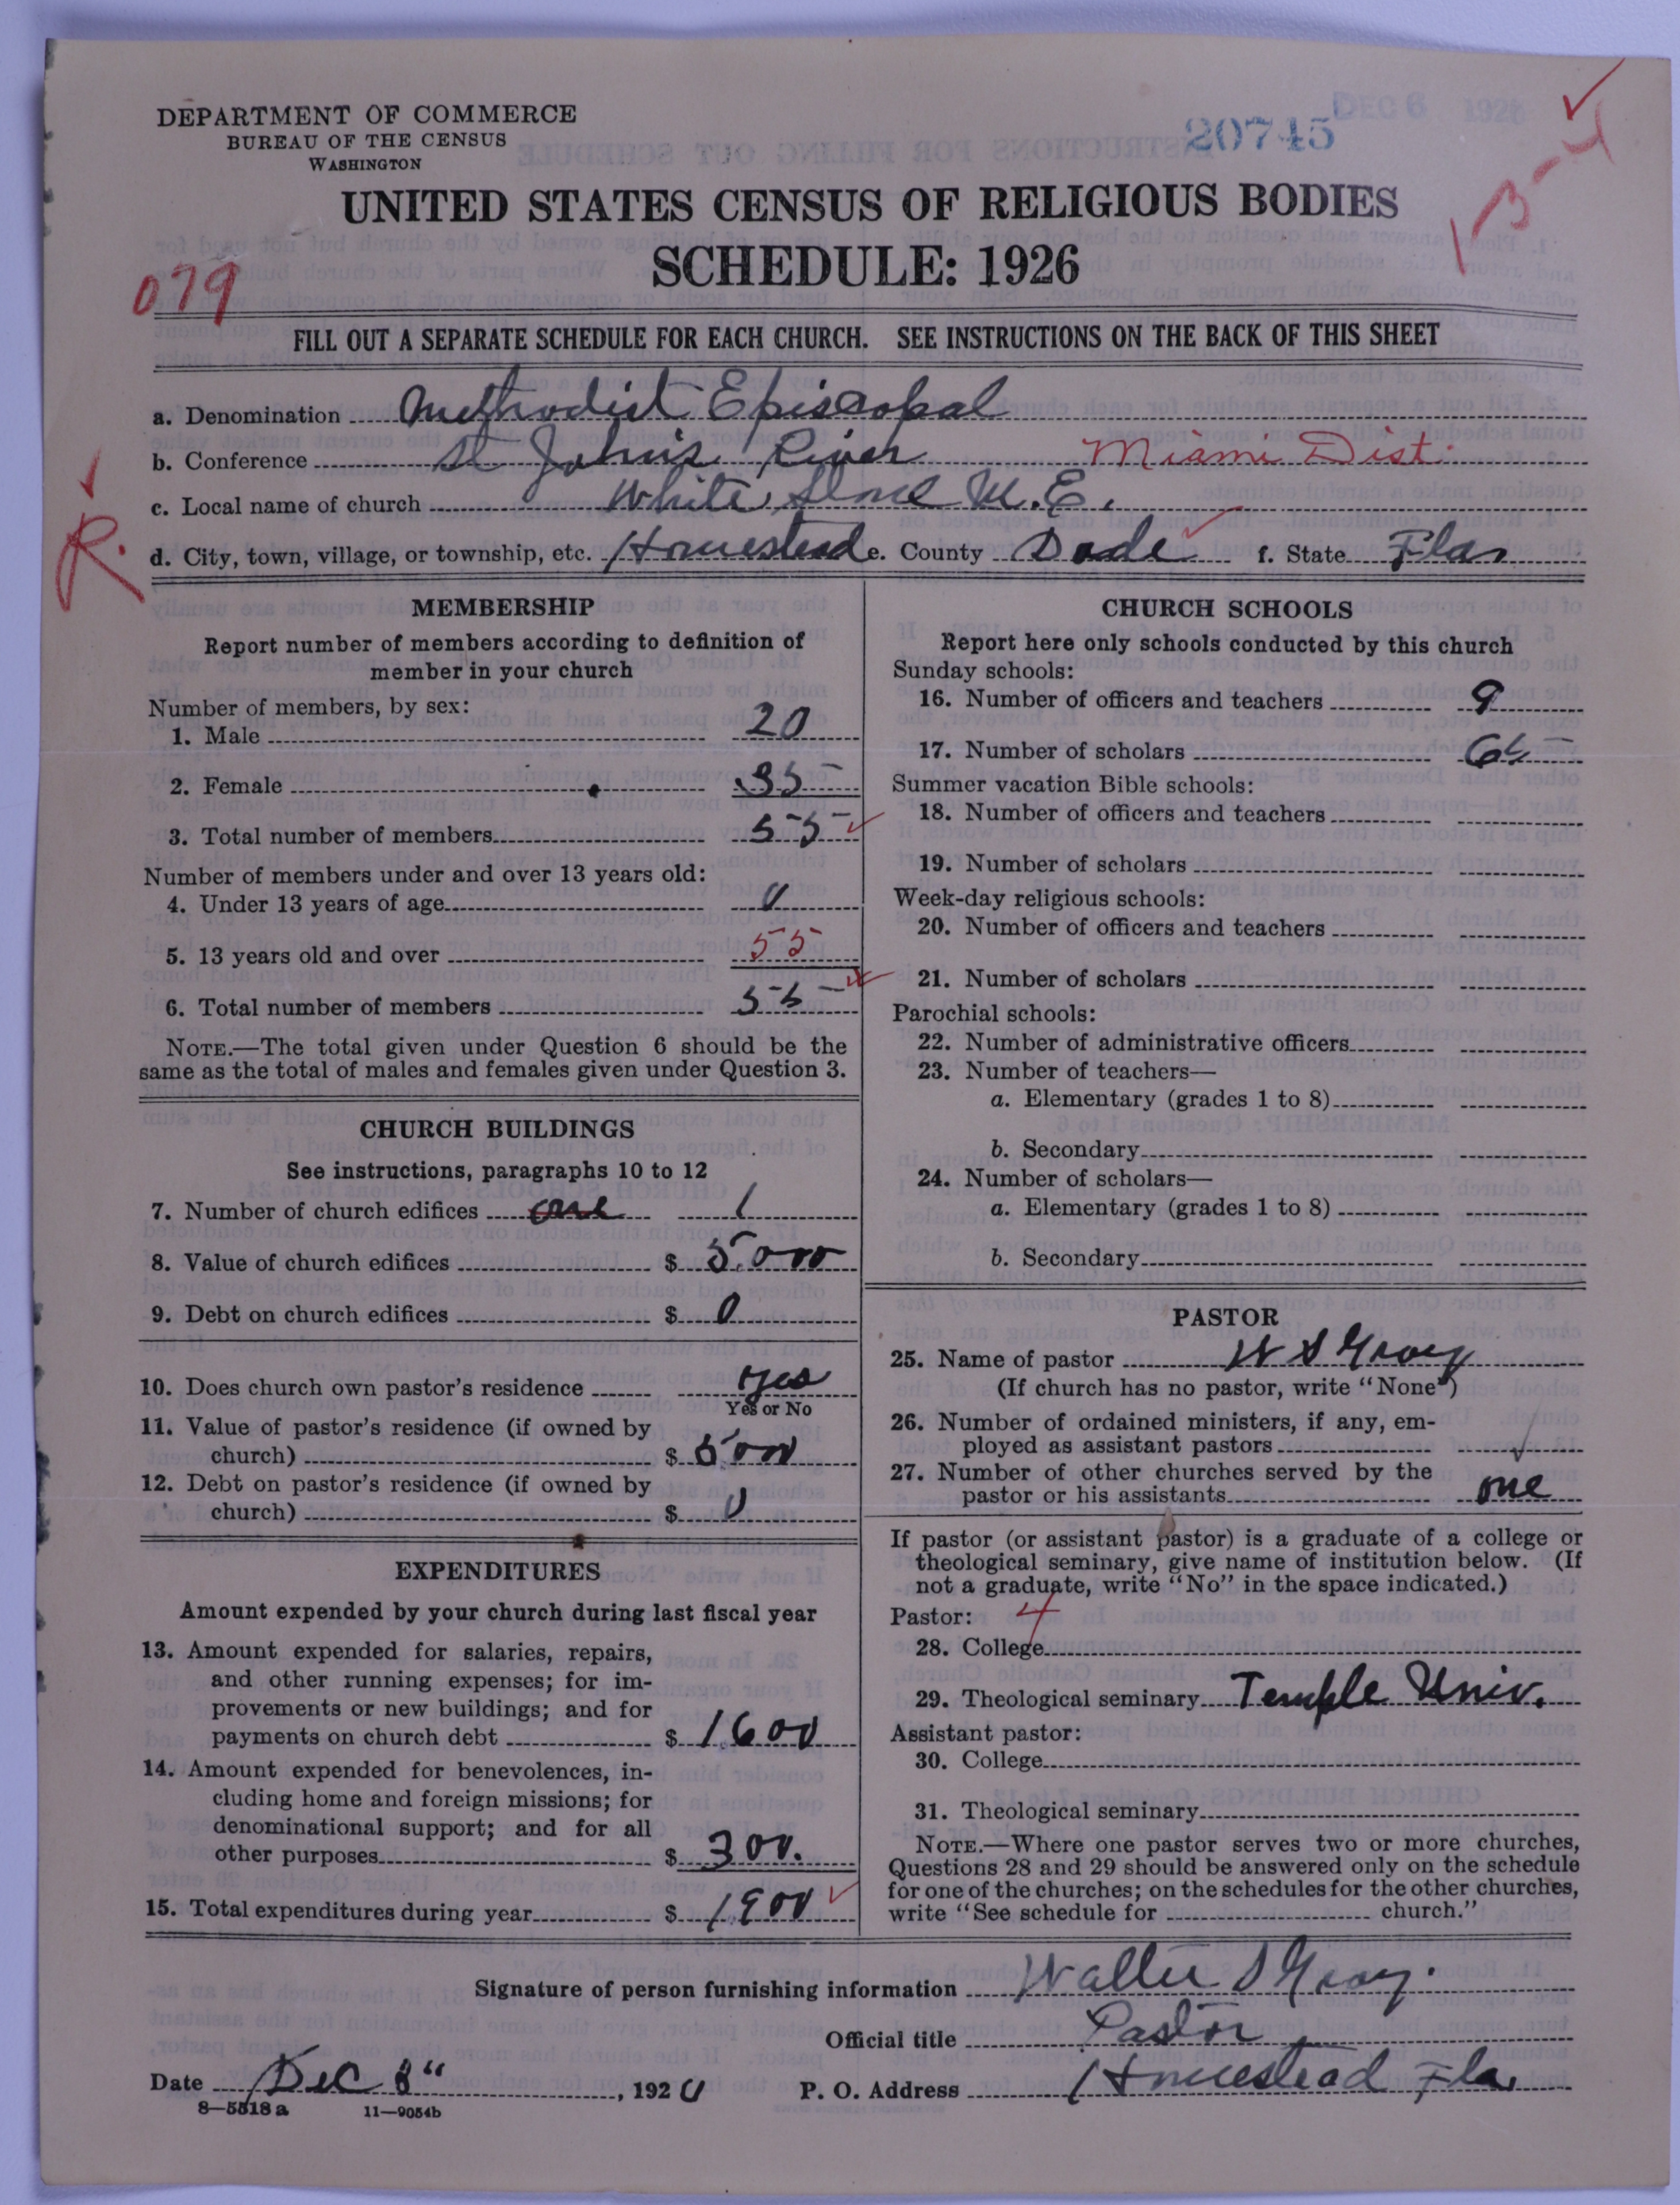 DEPARTMENT OF COMMERCE
BUREAU OF THE CENSUS
WASHINGTON
20745
DEC 6 1926
UNITED STATES CENSUS OF RELIGIOUS BODIES
SCHEDULE: 1926
3-4
079
FILL OUT A SEPARATE SCHEDULE FOR EACH CHURCH. SEE INSTRUCTIONS ON THE BACK OF THIS SHEET
a. Denomination Methodist Episcopal
b. Conference St Johns River Miami Dist.
c. Local name of church White M.E.
R.
d. City, town, village, or township, etc. Homestead e. County Dade f. State Fla
MEMBERSHIP
Report number of members according to definition of
member in your church
Number of members, by sex:
1. Male 20
2. Female 35
3. Total number of members 55
Number of members under and over 13 years old:
4. Under 13 years of age 0
5. 13 years old and over 55
6. Total number of members 55
NOTE.—The total given under Question 6 should be the
same as the total of males and females given under Question 3.
CHURCH BUILDINGS
See instructions, paragraphs 10 to 12
7. Number of church edifices one 1
8. Value of church edifices $ 5.000
9. Debt on church edifices $ 0
10. Does church own pastor's residence yes
Yes or No
11. Value of pastor's residence (if owned by
church) $ 5000
12. Debt on pastor's residence (if owned by
church) $ 0
EXPENDITURES
Amount expended by your church during last fiscal year
13. Amount expended for salaries, repairs,
and other running expenses; for im-
provements or new buildings; and for
payments on church debt $ 1600
14. Amount expended for benevolences, in-
cluding home and foreign missions; for
denominational support; and for all
other purposes $ 300.
15. Total expenditures during year $ 1900
CHURCH SCHOOLS
Report here only schools conducted by this church
Sunday schools:
16. Number of officers and teachers 9
17. Number of scholars
Summer vacation Bible schools:
18. Number of officers and teachers
19. Number of scholars
Week-day religious schools:
20. Number of officers and teachers
21. Number of scholars
Parochial schools:
22. Number of administrative officers
23. Number of teachers—
a. Elementary (grades 1 to 8)
b. Secondary
24. Number of scholars—
a. Elementary (grades 1 to 8)
b. Secondary
PASTOR
25. Name of pastor W S Gray
(If church has no pastor, write "None")
26. Number of ordained ministers, if any, em-
ployed as assistant pastors
27. Number of other churches served by the
pastor or his assistants one
If pastor (or assistant pastor) is a graduate of a college or
theological seminary, give name of institution below. (If
not a graduate, write "No" in the space indicated.)
Pastor: 4
28. College
29. Theological seminary Temple Univ.
Assistant pastor:
30. College
31. Theological seminary
NOTE.—Where one pastor serves two or more churches,
Questions 28 and 29 should be answered only on the schedule
for one of the churches; on the schedules for the other churches,
write "See schedule for church."
Signature of person furnishing information Walter S Gray.
Official title Pastor
Date Dec 8", 192 P. O. Address Homestead Fla,
8—5518 a 11—9054b